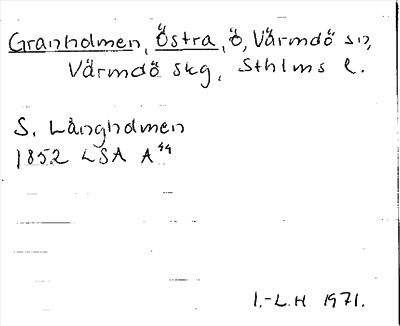 Granholmen, Östra, ö, Värmdö sn,
Värmdö skg, Sthlms l.
S. Långholmen
1852 LSA A⁴⁴
I.-L.H 1971.